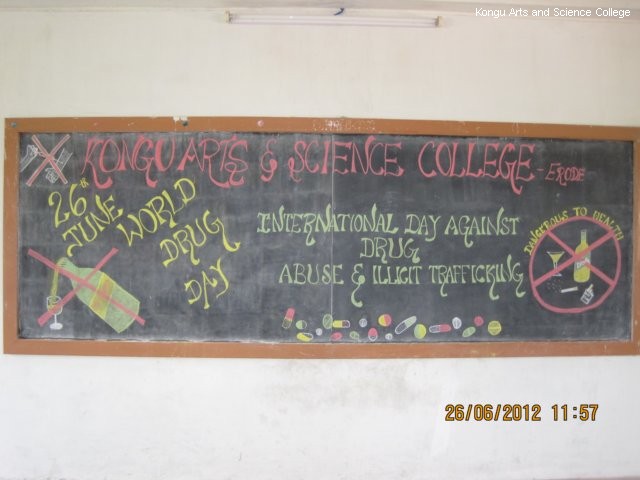 Kongu Arts and Science College
KONGU ARTS & SCIENCE COLLEGE - ERODE
26th
JUNE
WORLD
DRUG
DAY
INTERNATIONAL DAY AGAINST
DRUG
ABUSE & ILLICIT TRAFFICKING
DANGEROUS TO HEALTH
26/06/2012 11:57